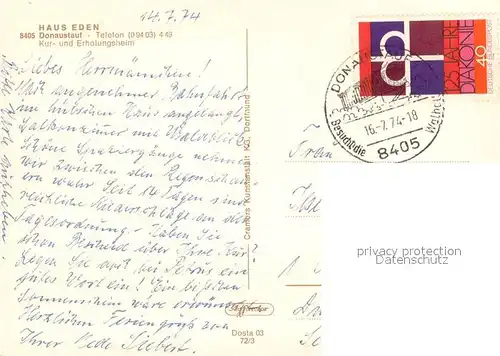 14.7.74
HAUS EDEN
8405 Donaustauf - Telefon (09403) 449
Kur- und Erholungsheim
Liebes Herrmännchen!
Nach angenehmer Bahnfahrt
im hübschen Haus angelangt.
Balkonzimmer mit Waldblick.
Schöne Spaziergänge nehmen
wir zwischen den Regenschauern
wahr. Seit 14 Tagen sind
reichliche Niederschläge an der
Tagesordnung. Haben Sie
schon Bescheid über Ihre Kur?
Legen Sie dort bei Petrus ein
gutes Wort ein! Ein bißchen
Sonnenschein wäre erwünscht
Herzlichen Feriengruß von
Ihrer Siebert.
Karte aufheben.
Cramers Kunstanstalt KG, Dortmund
Dosta 03
72/3
125 JAHRE
DIAKONIE
40
DEUTSCHE BUNDESPOST
DONAUSTAUF
16.-7.74-18
Besucht die
8405
Frau
privacy protection
Datenschutz